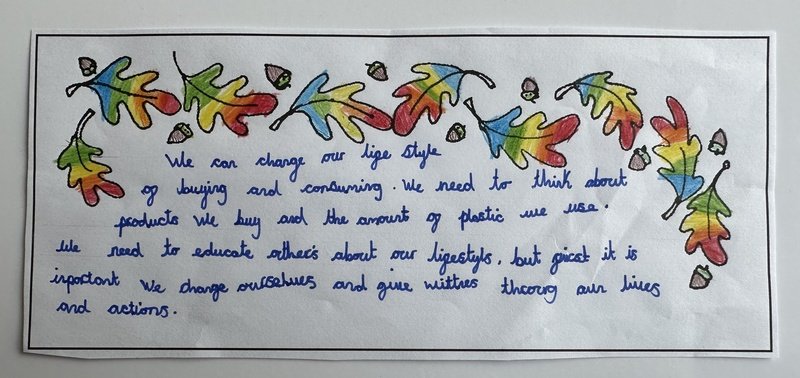 We can change our lige style
of buying and consuming. We need to think about
products We buy and the amount of plastic we use.
We need to educate other's about our ligestyls, but girst it is
inportant We change ourselves and give wittnes throurg our lives
and actions.